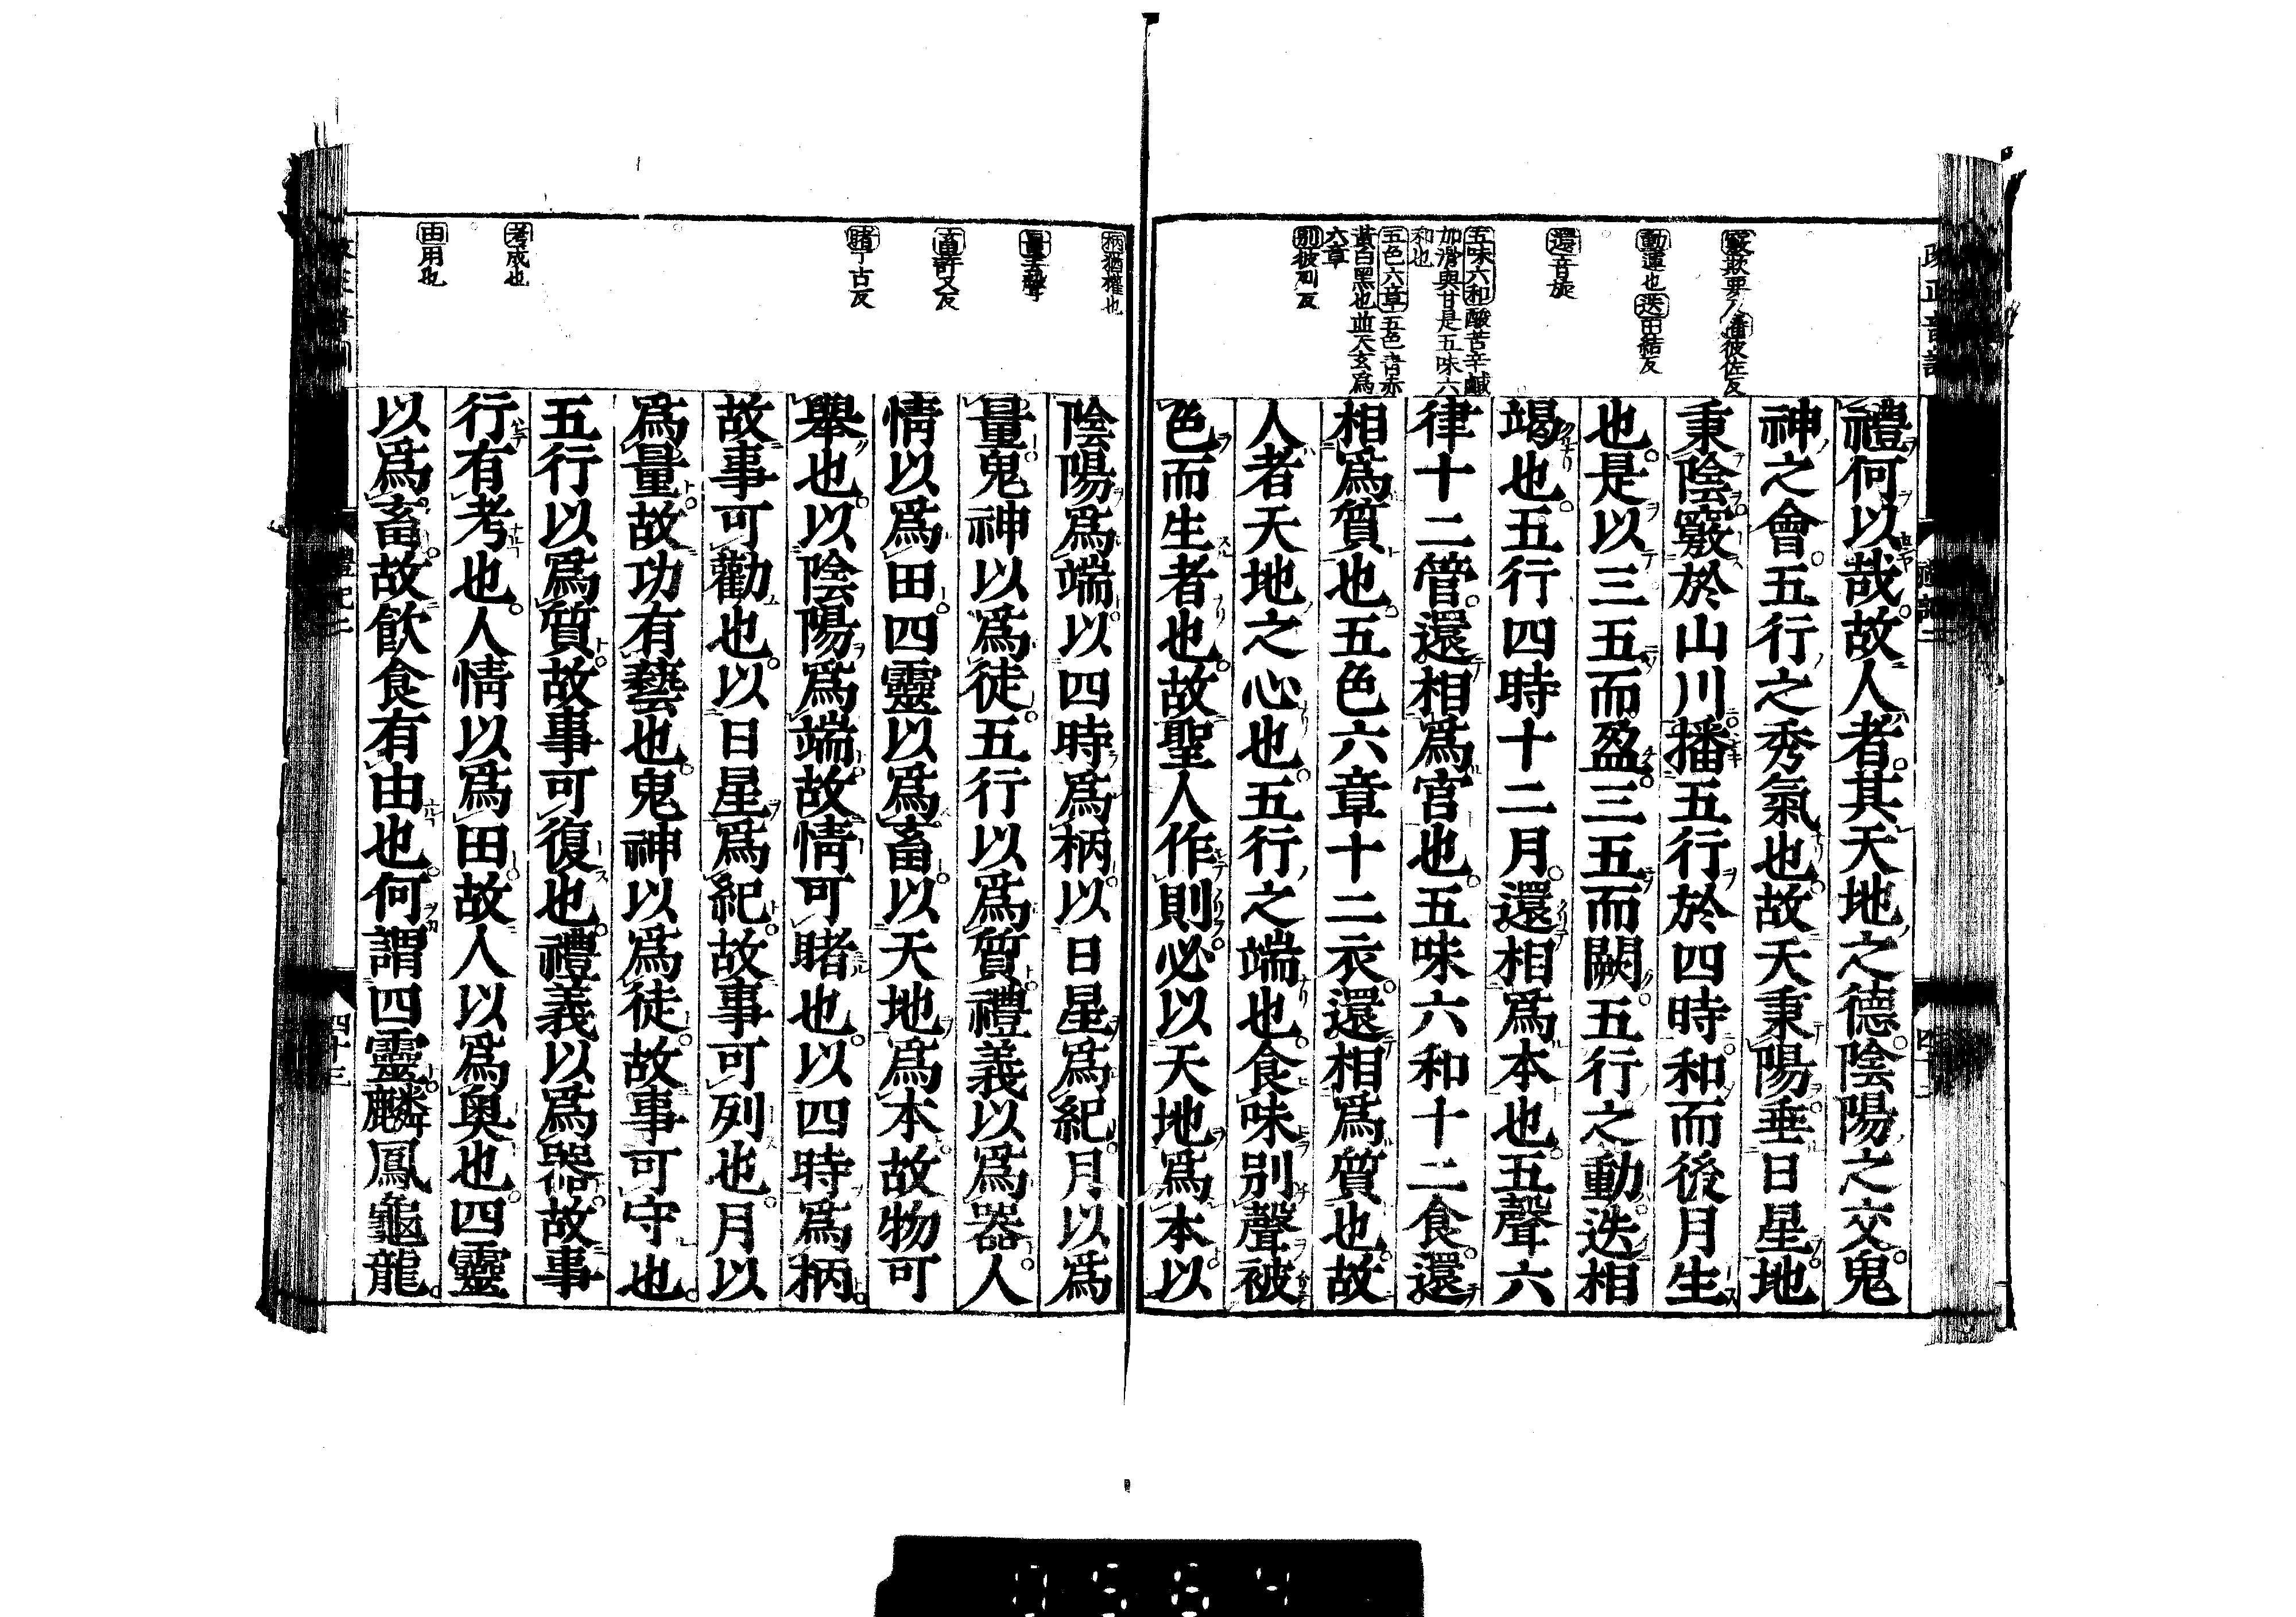 竅欬要人播彼佐反
動運也迭田結反
還音旋
五味六和酸苦辛鹹
加滑與甘是五味六
和也
五色六章五色青赤
黃白黑也並天玄爲
六章
別彼列反
禮何以哉故人者其天地之德陰陽之交鬼
神之會五行之秀氣也故天秉陽垂日星地
秉陰竅於山川播五行於四時和而後月生
也是以三五而盈三五而闕五行之動迭相
竭也五行四時十二月還相爲本也五聲六
律十二管還相爲宮也五味六和十二食還
相爲質也五色六章十二衣還相爲質也故
人者天地之心也五行之端也食味別聲被
色而生者也故聖人作則必以天地爲本以
柄猶權也
畜許又反
睹丁古反
考成也
由用也
陰陽爲端以四時爲柄以日星爲紀月以爲
量鬼神以爲徒五行以爲質禮義以爲器人
情以爲田四靈以爲畜以天地爲本故物可
舉也以陰陽爲端故情可睹也以四時爲柄
故事可勸也以日星爲紀故事可列也月以
爲量故功有藝也鬼神以爲徒故事可守也
五行以爲質故事可復也禮義以爲器故事
行有考也人情以爲田故人以爲奧也四靈
以爲畜故飲食有由也何謂四靈麟鳳龜龍
四十三